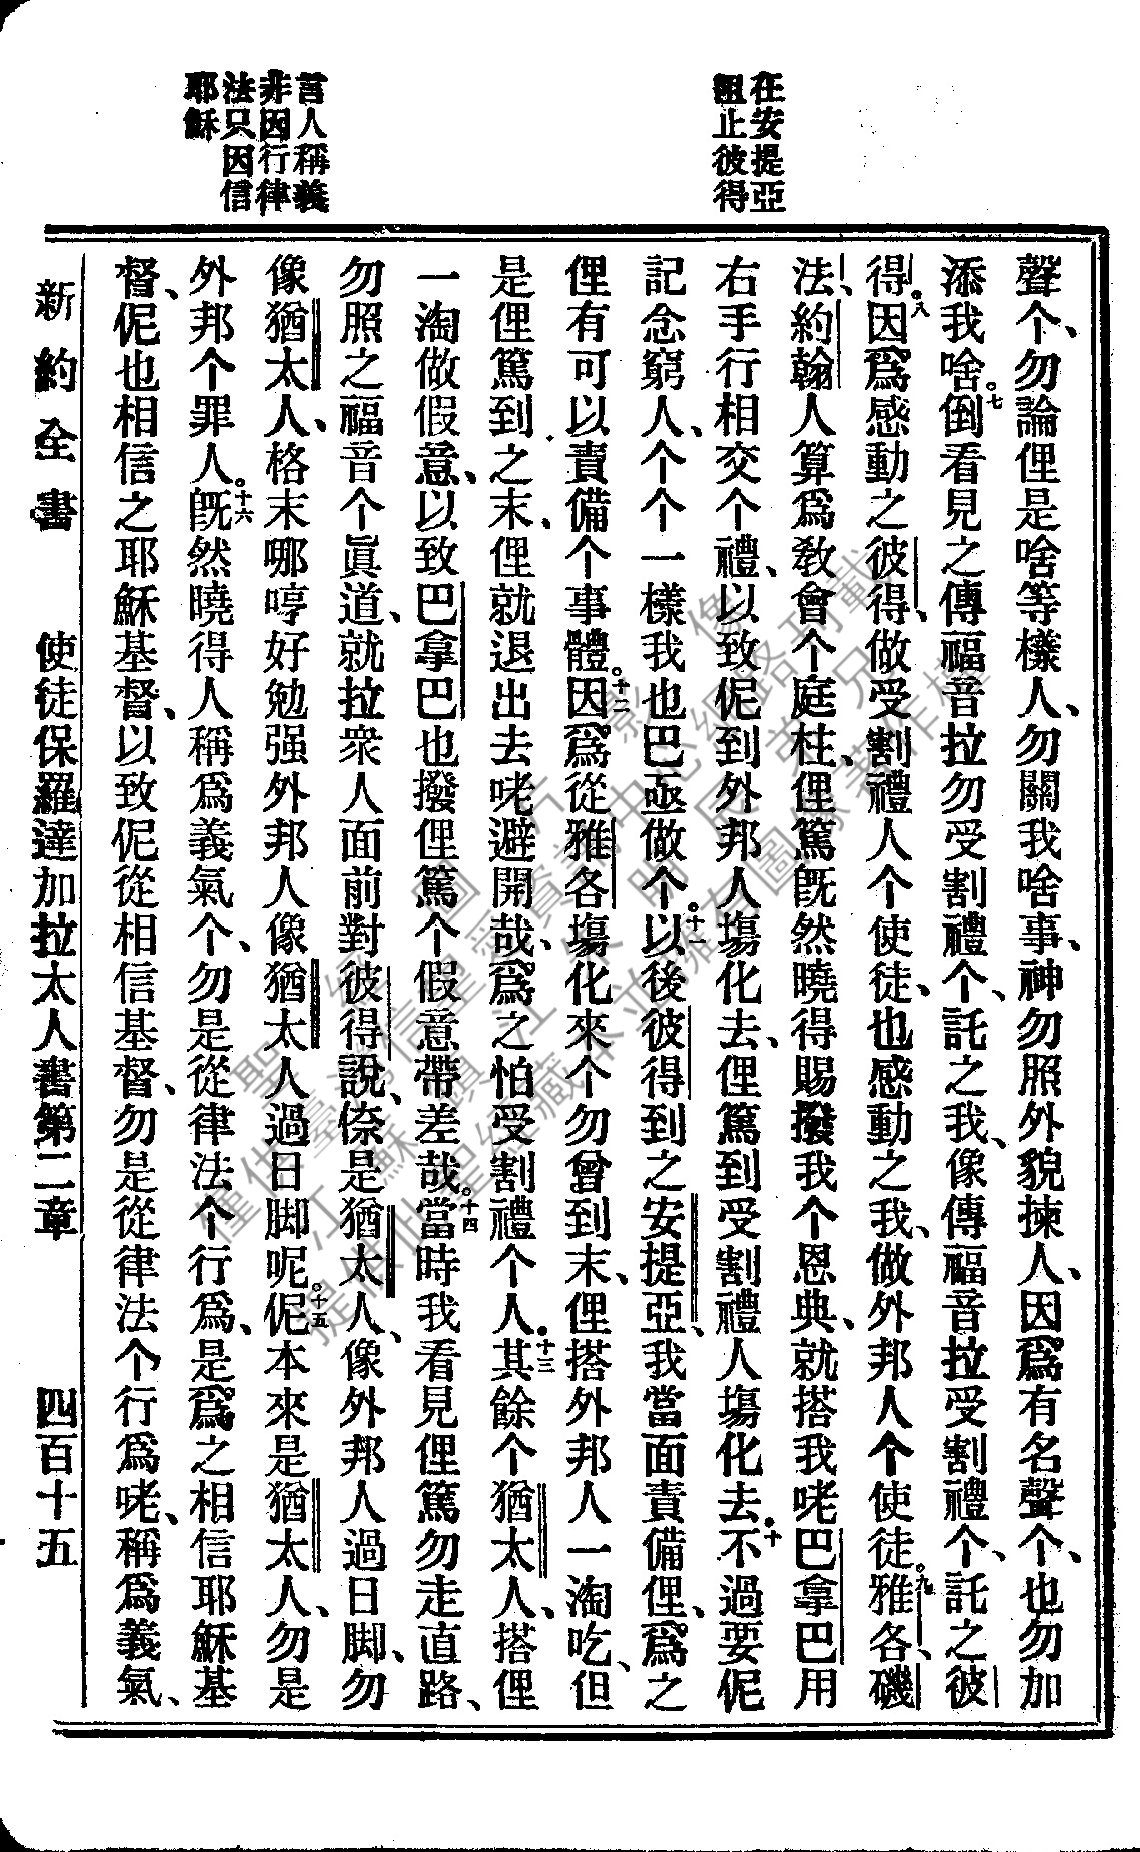 在安提亞
阻止彼得
言人稱義
非因行律
法只因信
耶穌
聲个、勿論俚是啥等樣人、勿關我啥事、神勿照外貌揀人、因爲有名聲个、也勿加
添我啥。七倒看見之傳福音拉勿受割禮个、託之我、像傳福音拉受割禮个、託之彼
得。八因爲感動之彼得、做受割禮人个使徒、也感動之我、做外邦人个使徒。九雅各、磯
法、約翰人算爲敎會个庭柱、俚篤旣然曉得賜撥我个恩典、就搭我咾巴拿巴用
右手行相交个禮、以致伲到外邦人塲化去、俚篤到受割禮人塲化去。十不過要伲
記念窮人、个个一樣我也巴亟做个。十一以後彼得到之安提亞、我當面責備俚、爲之
俚有可以責備个事體。十二因爲從雅各塲化來个勿曾到末、俚搭外邦人一淘吃、但
是俚篤到之末、俚就退出去咾避開哉、爲之怕受割禮个人。十三其餘个猶太人、搭俚
一淘做假意、以致巴拿巴也撥俚篤个假意帶差哉。十四當時我看見俚篤勿走直路、
勿照之福音个眞道、就拉衆人面前對彼得說、倷是猶太人、像外邦人過日脚、勿
像猶太人、格末哪哼好勉强外邦人像猶太人過日脚呢。十五伲本來是猶太人、勿是
外邦个罪人。十六旣然曉得人稱爲義氣个、勿是從律法个行爲、是爲之相信耶穌基
督、伲也相信之耶穌基督、以致伲從相信基督、勿是從律法个行爲咾、稱爲義氣、
新約全書　使徒保羅達加拉太人書第二章　四百十五
聖經圖片影像
僅供臺灣信望愛資訊中心網路刊載
江蘇鎮江朱明民弟兄
提供此聖經藏本並擁有圖像著作權